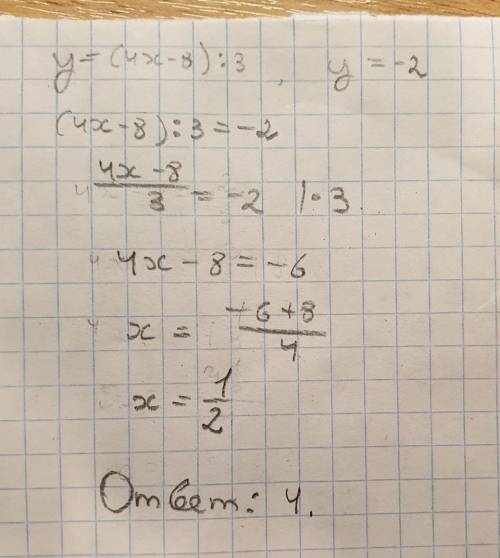 y = (4x-8):3 , y = -2
(4x-8):3 = -2
\frac{4x-8}{3} = -2 |·3
4x - 8 = -6
x = \frac{-6+8}{4}
x = \frac{1}{2}
Ответ: 4.